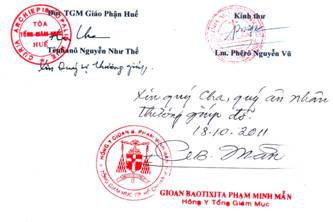 Duy TGM Giáo Phận Huế
Kính thư
CURIA ARCHIEPISCOPALIS
TÒA
TỔNG GIÁM MỤC
HUẾ
Têphanô Nguyễn Như Thể
Lm. Phêrô Nguyễn Vũ
Xin Quý vị thương giúp,
Xin quý Cha, quý ân nhân
thương giúp đỡ.
18.10.2011
HỒNG Y GIOAN B. PHẠM MINH MẪN
TỔNG GIÁM MỤC TP. HỒ CHÍ MINH
GB. Mẫn
GIOAN BAOTIXITA PHẠM MINH MẪN
Hồng Y Tổng Giám Mục